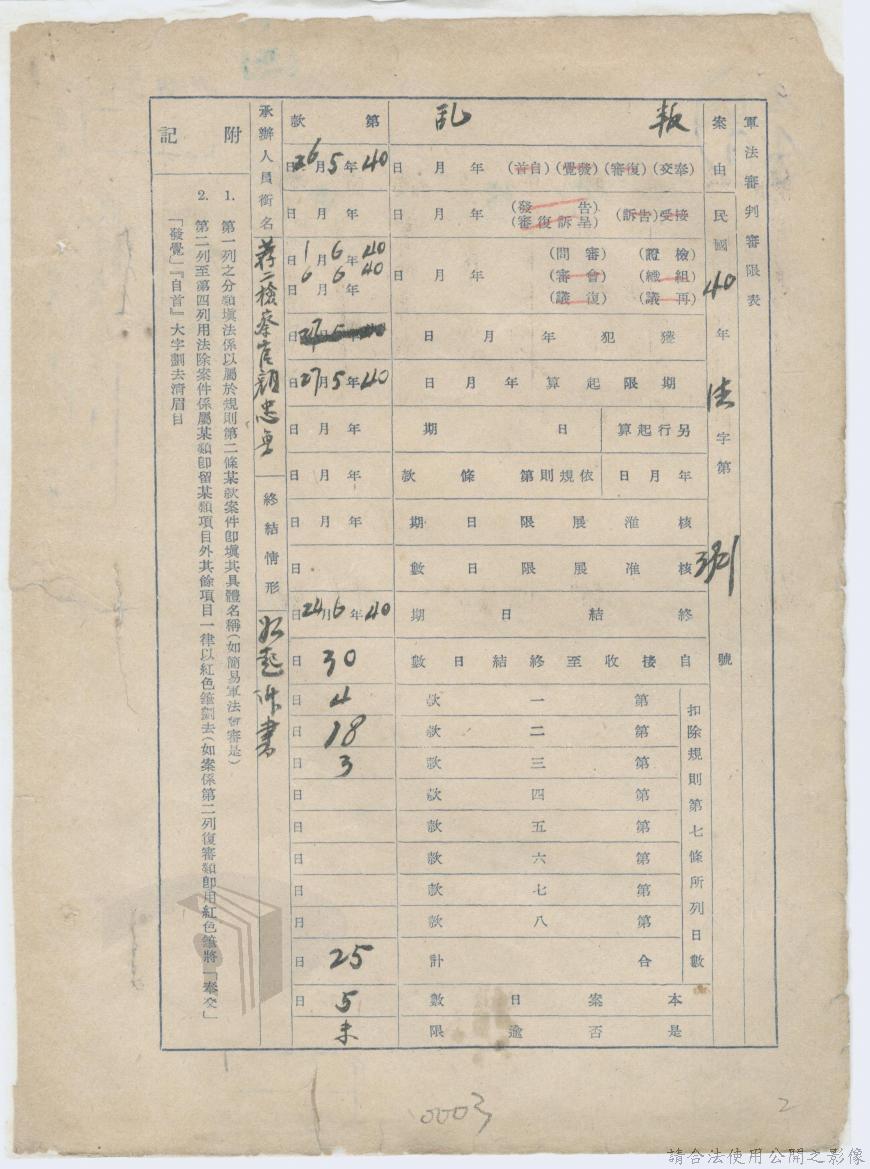 軍法審判審限表
案由 叛亂 第 款
民國40年法字第 號
奉交(復審)(發覺)(自首) 年 月 日 40年5月26日
接受(告訴)(告發)(呈訴復審) 年 月 日 年 月 日
(檢證)(審問) 40年6月1日
(組織)(會審) 年 月 日 40 6 6
(再議)(復議) 年 月 日
獲犯年月日 年 月 日
期限起算年月日 40年5月27日
另行起算 日期 年 月 日
年月日 依規則第 條 款 年 月 日
核准展限日期 年 月 日
核准展限日數 日
終結日期 40年6月24日
自接收至終結日數 30日
扣除規則第七條所列日數
第一款 4日
第二款 18日
第三款 3日
第四款 日
第五款 日
第六款 日
第七款 日
第八款 日
合計 25日
本案日數 5日
是否逾限 未
承辦人員銜名
終結情形
附記
1. 第一列之分類填法係以屬於規則第二條某款案件卽填其具體名稱(如簡易軍法會審是)
2. 第二列至第四列用法除案件係屬某類卽留某類項目外其餘項目一律以紅色筆劃去(如案係第二列復審類卽用紅色筆將「奉交」
「發覺」『自首』大字劃去清眉目
0003
2
請合法使用公開之影像